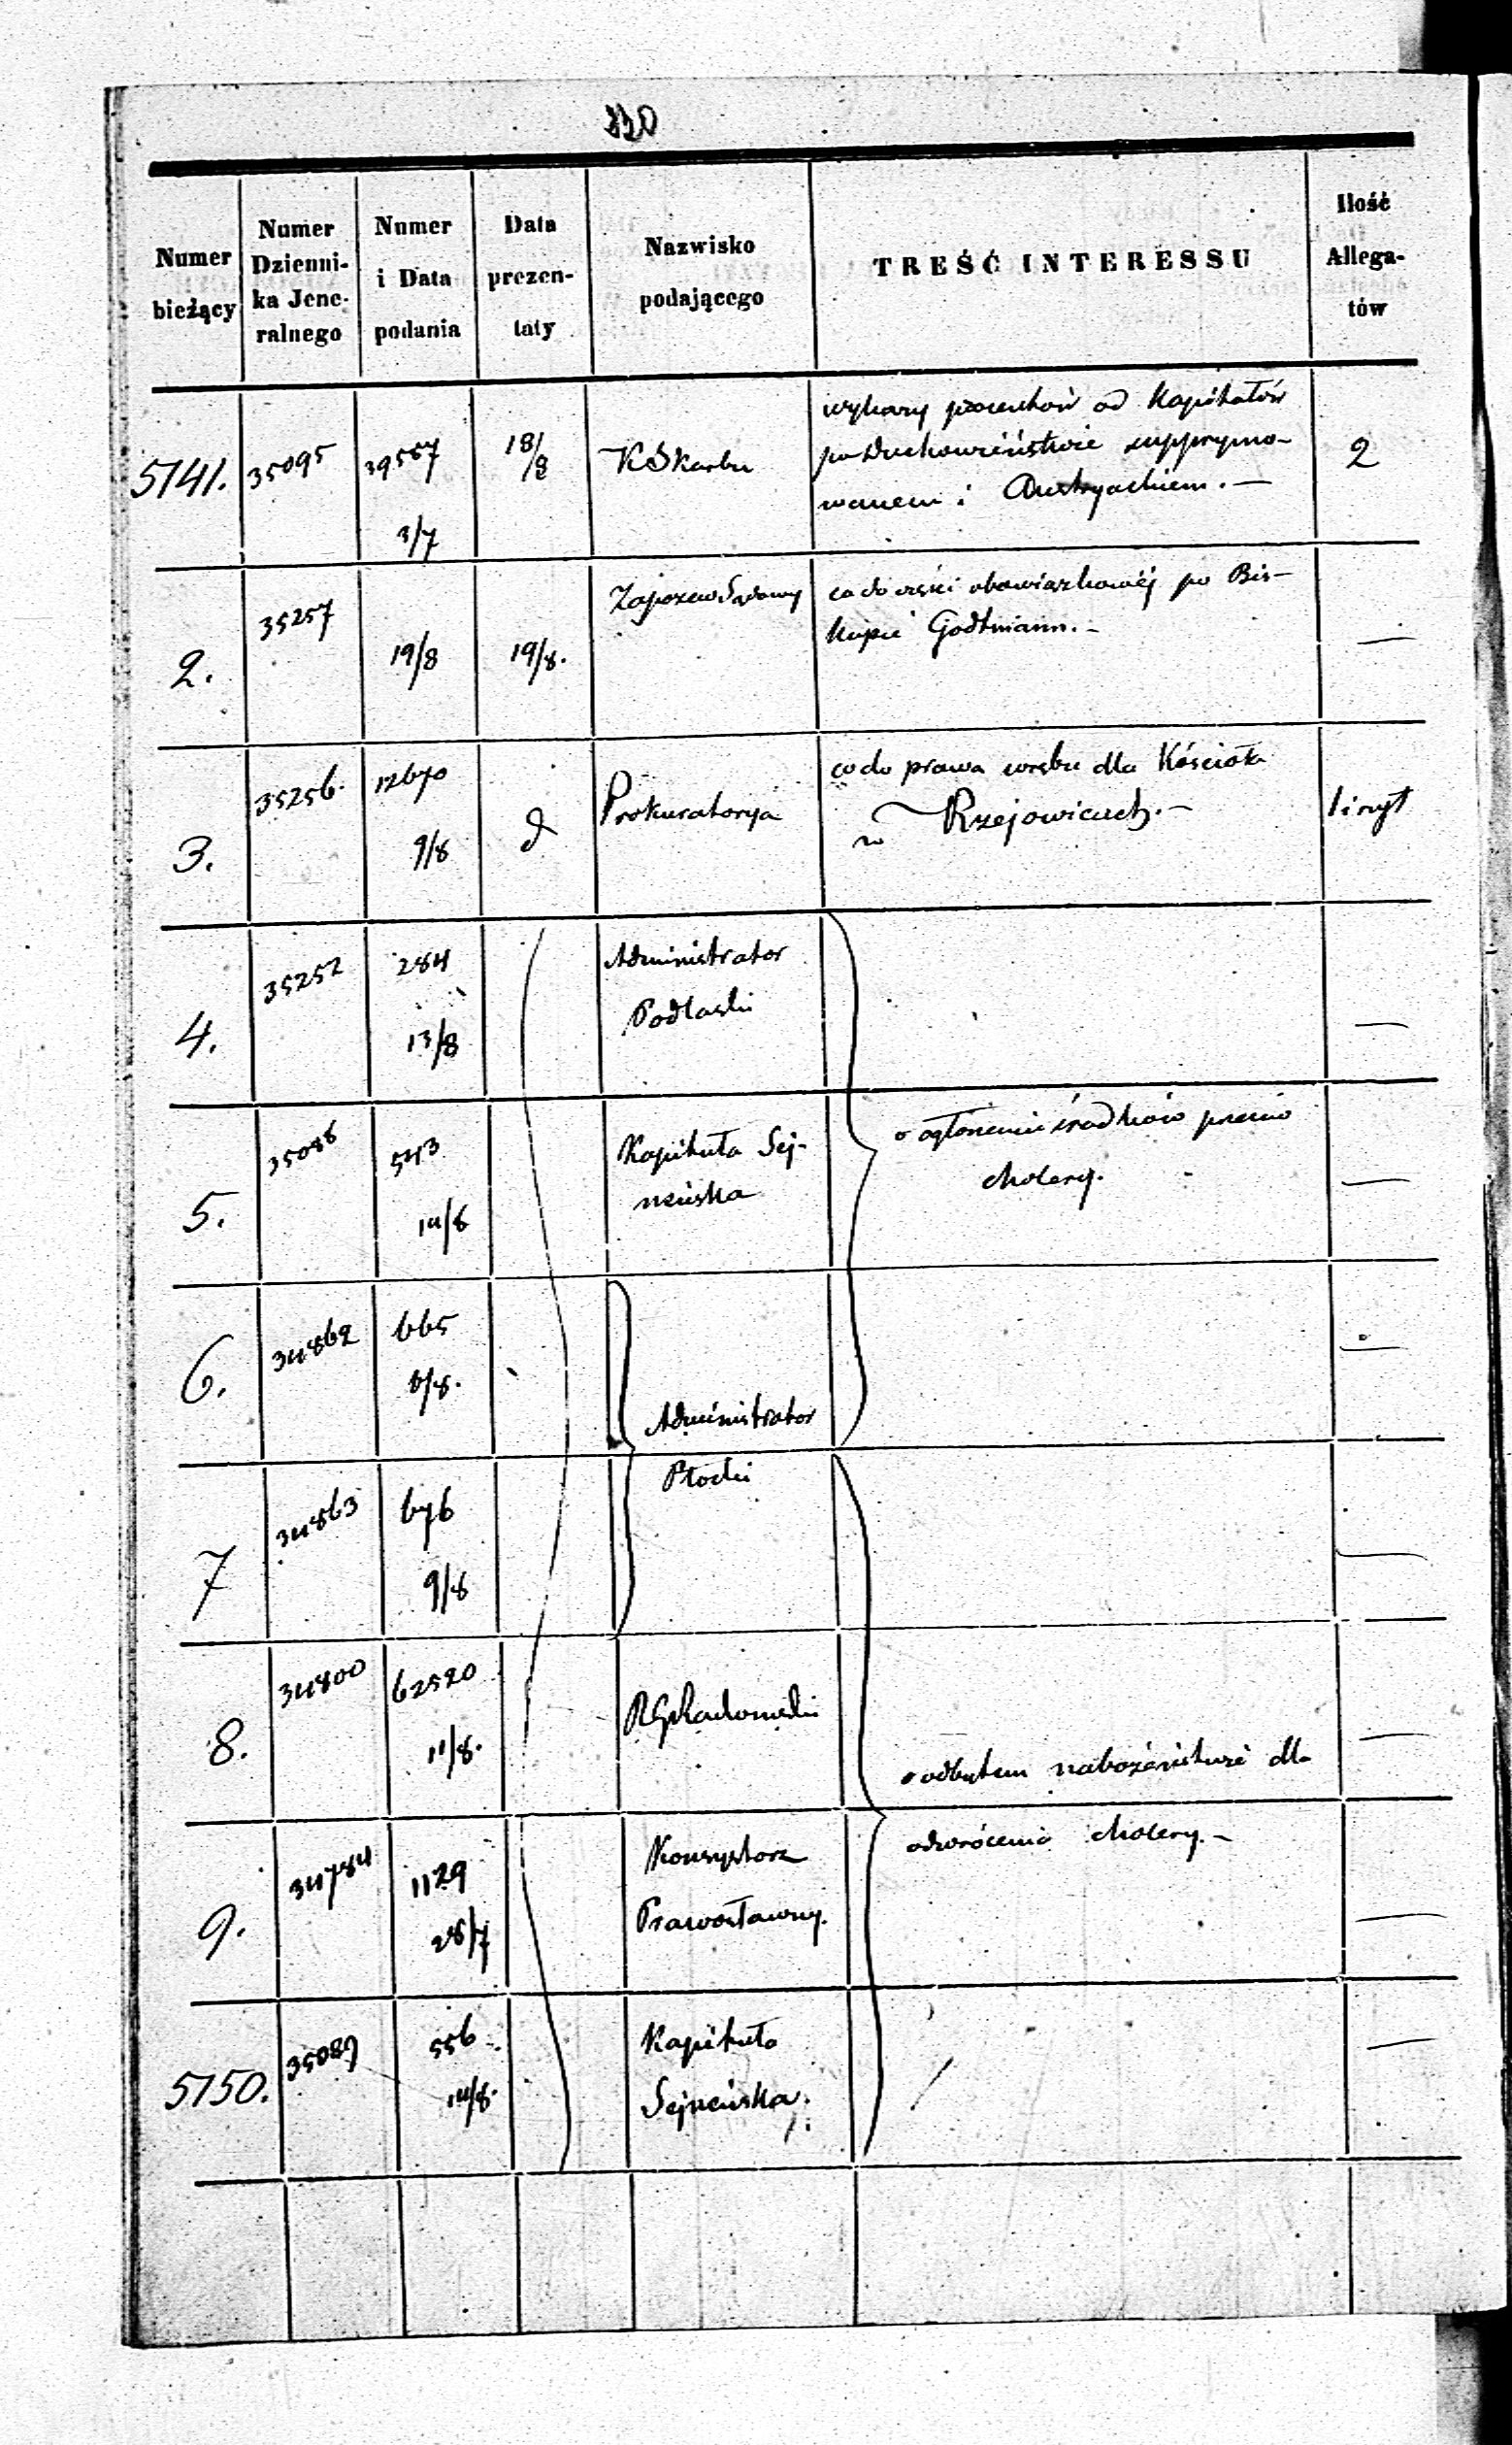 Numer
bieżący
Numer
Dzienni-
ka Jene-
ralnego
Numer
i Data
podania
Data
prezen-
taty
Nazwisko
podającego
TREŚĆ INTERESSU
Ilość
Allega-
tów
5141.
35095
39567
3/7
18/8
K S Karbu
wykazy procentów od Kapitałów
po Duchowieństwie supprymo-
wanem i Austryackiem. —
2
2.
35257
19/8
19/8.
Zapozew Sądowy
co do części obowiązkowéj po Bis-
kupie Godtmann. —
—
3.
35256.
12670
9/8
d
Prokuratorya
co do prawa wrębu dla Kościoła
w Rzejowicach. —
4.
35252
284
13/8
Administrator
Podlaski
—
5.
35088
543
14/8
Kapituła Sej-
neńska
o ogłoszeniu środków przeciw
cholery.
—
6.
34862
665
8/8.
Administrator
Płocki
—
7
34863
676
9/8
—
8.
34800
62520
11/8.
RG Radomski
o odbytem nabożeństwie dla
odwrócenia cholery. —
—
9.
34784
1129
28/7
Konsystorz
Prawosławny.
—
5150.
35089
556
14/8.
Kapituła
Sejneńska.
—